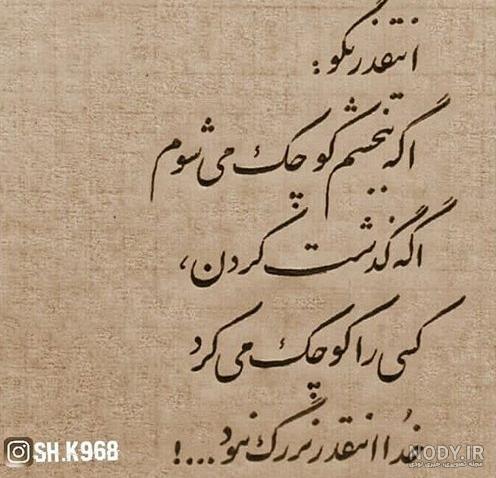 انتقدر نگو:
اگه ببخشم کوچک می شوم
اگه گذشت کردن،
کسی را کوچک می کرد
خدا انتقدر بزرگ نبود...!
SH.K968
NODY.IR